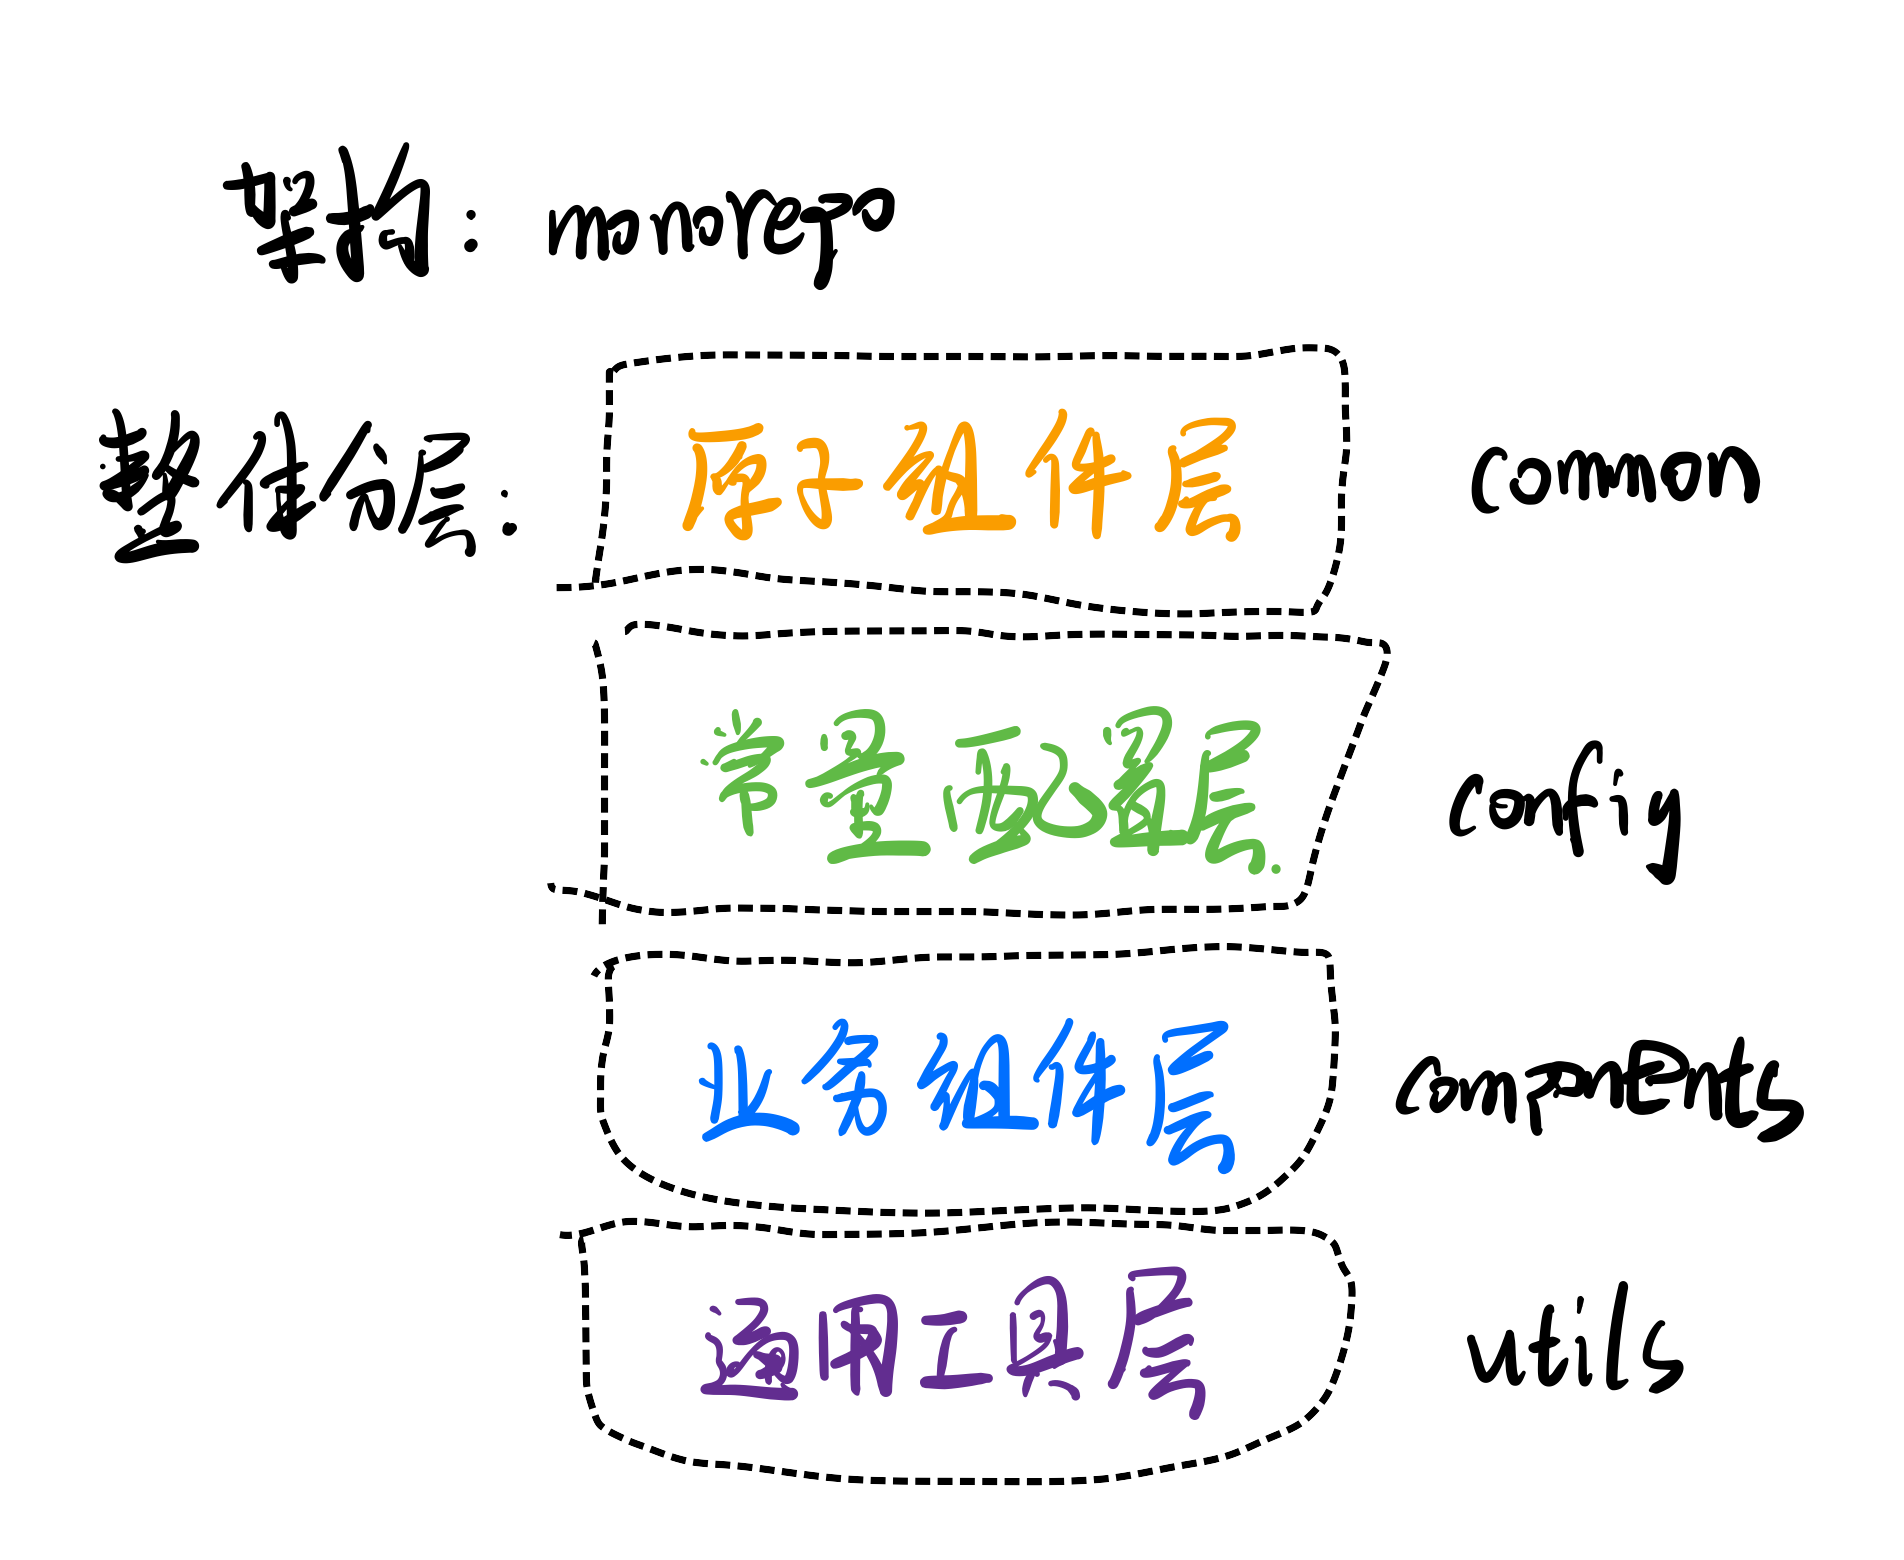 架构: monorepo
整体分层: 原子组件层 common
常量配置层. config
业务组件层 components
通用工具层 utils